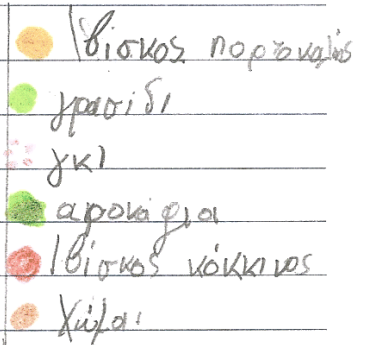 Ιβίσκος πορτοκαλής
γρασίδι
γκι
αροκάρια
Ιβίσκος κόκκινος
Χώμα